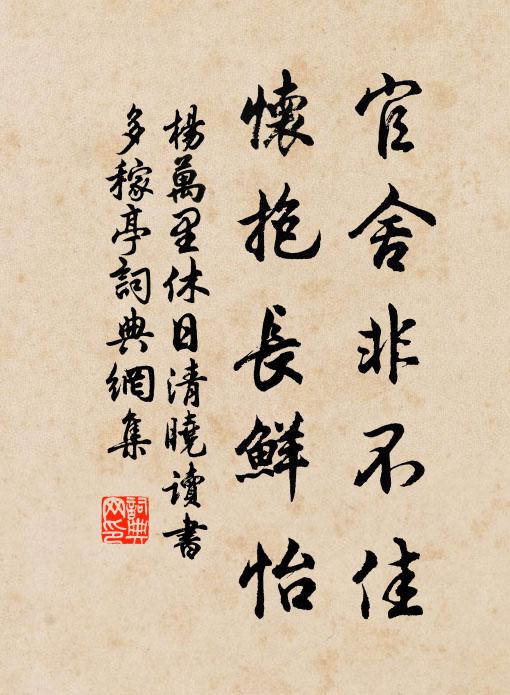 官舍非不佳
懷抱長鮮怡
楊萬里休日清曉讀書
多稼亭詞典網集
詞典
网印